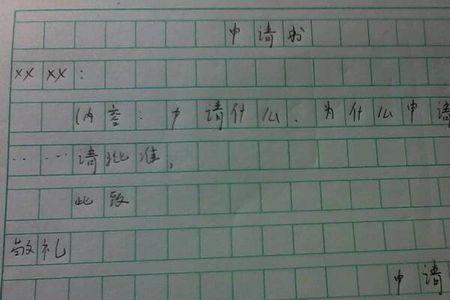 申请书
×× ××:
(内容:申请什么、为什么申请
……请批准,
此致
敬礼
申请